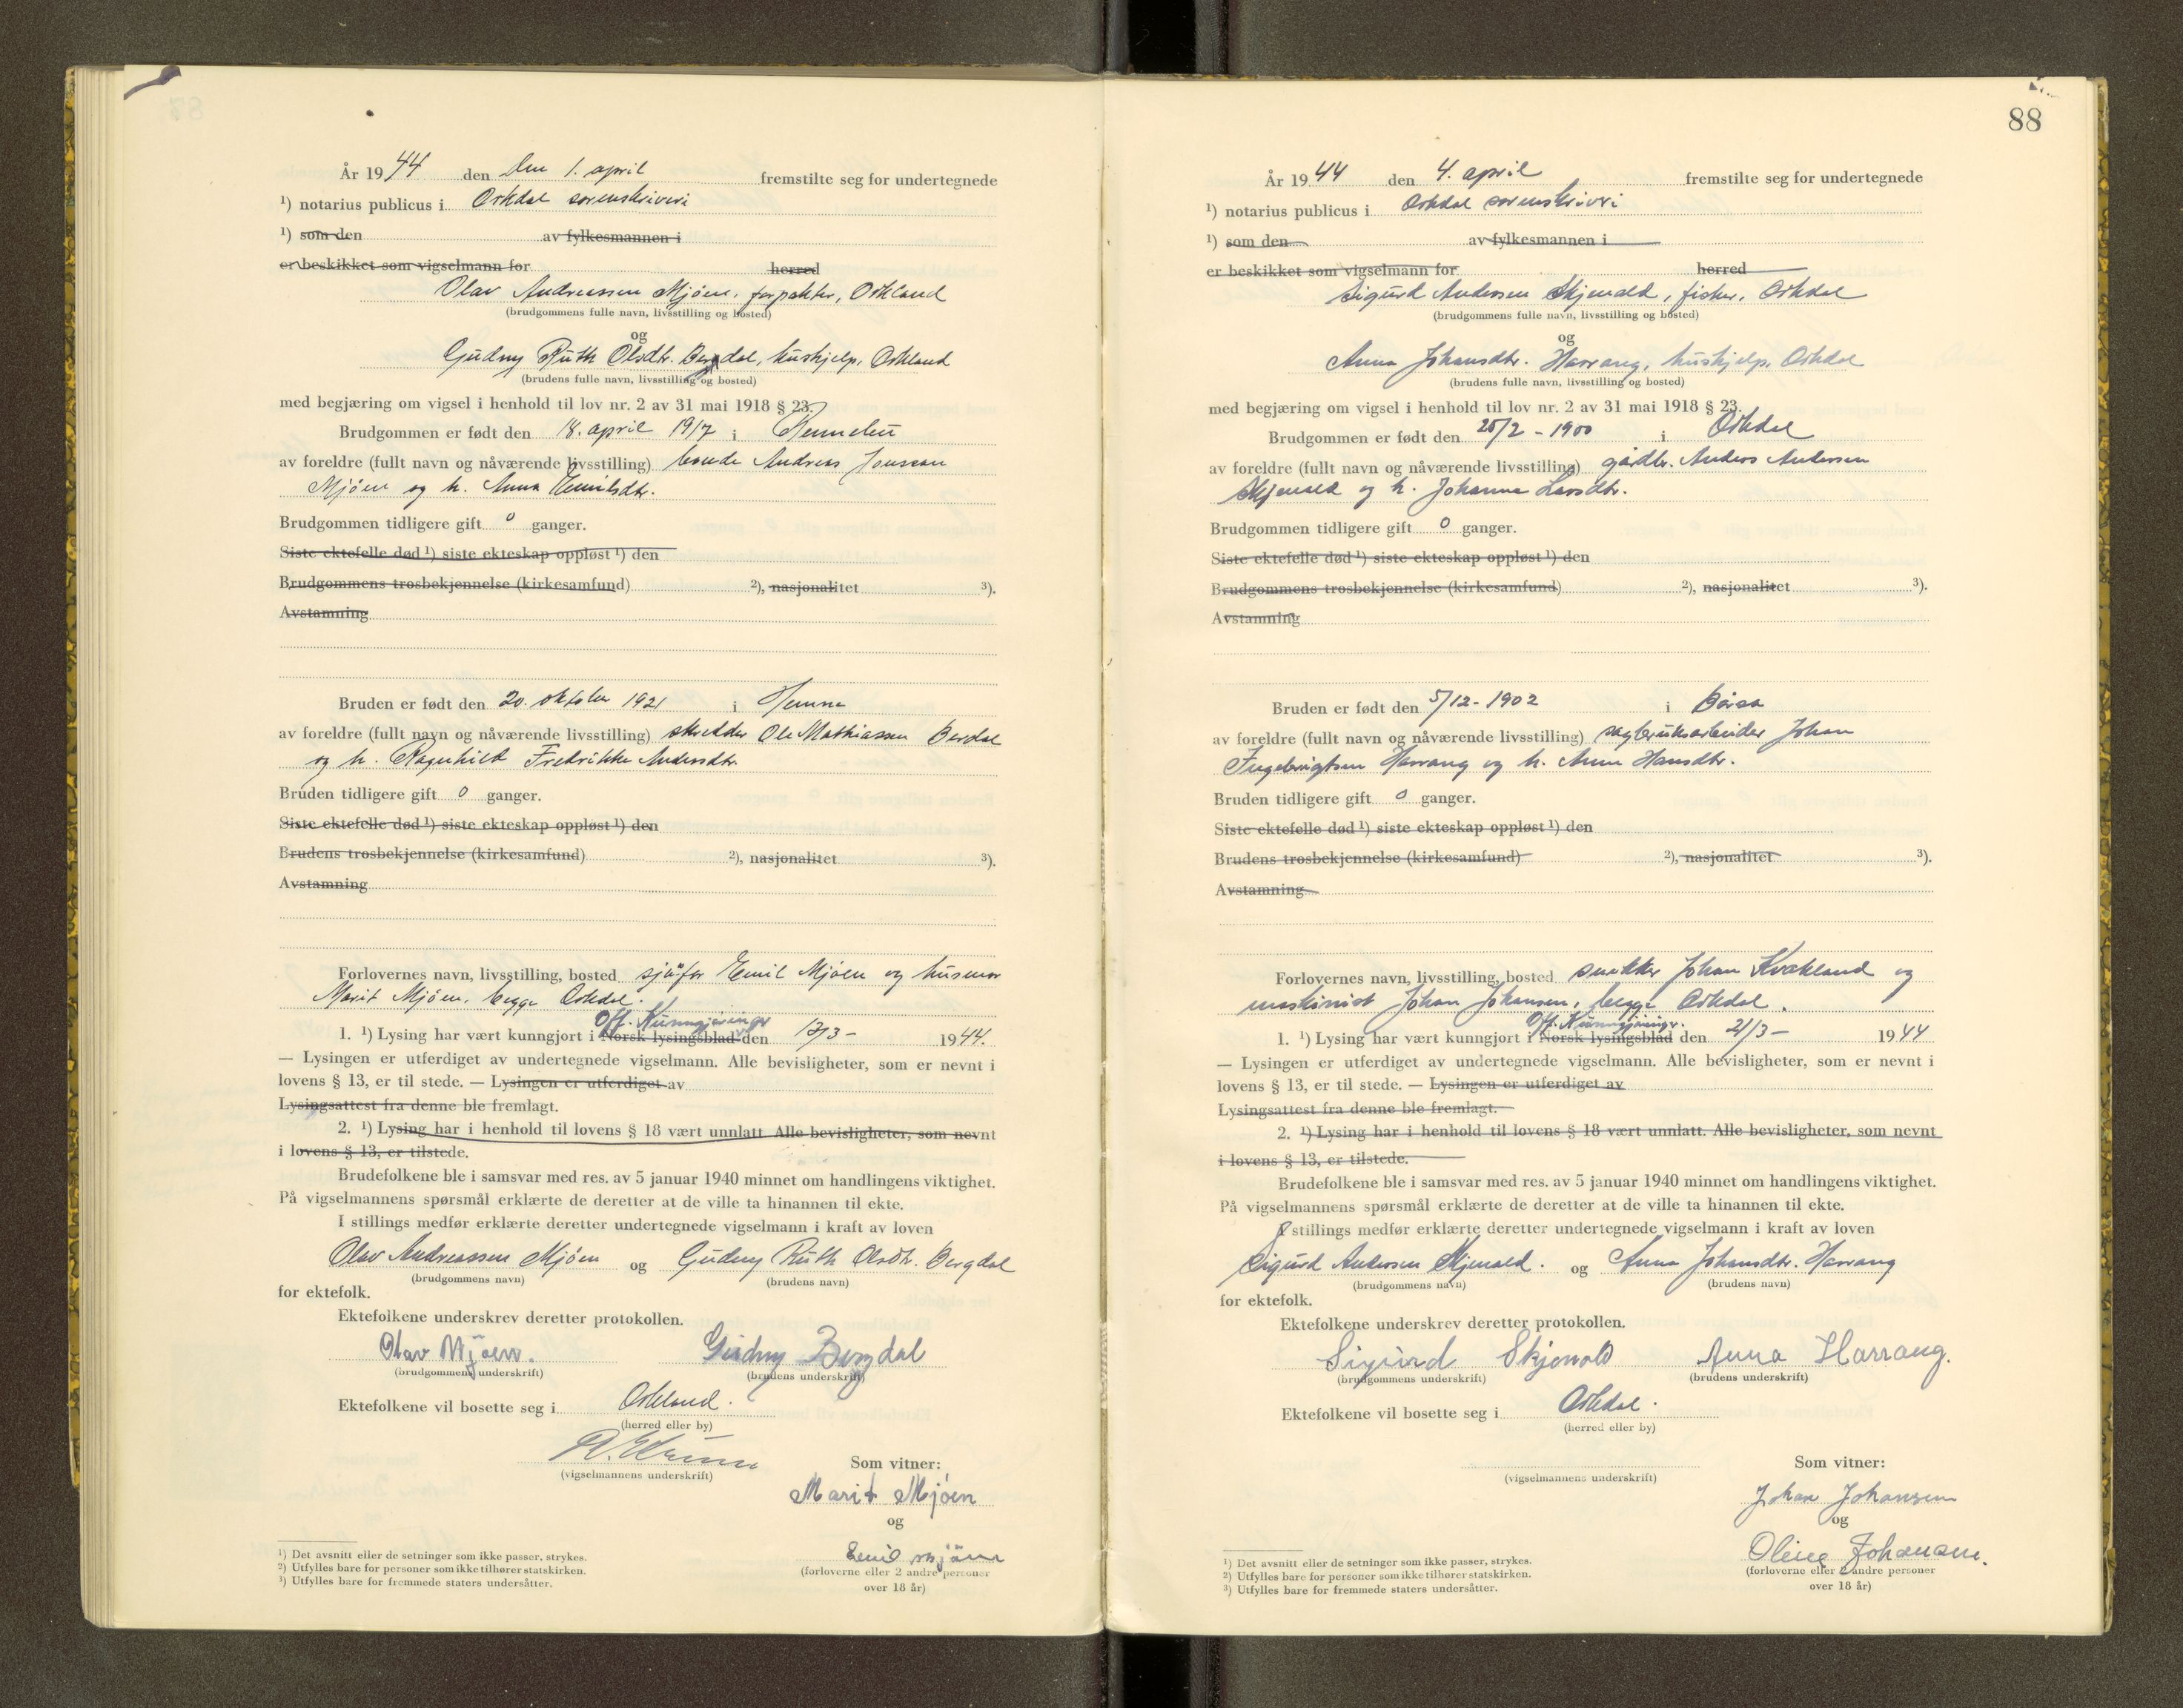 År 1944 den den 1. april fremstilte seg for undertegnede
¹) notarius publicus i Orkdal sorenskriveri
¹) som den av fylkesmannen i
er beskikket som vigselmann for herred
Olav Andreassen Mjöen, forpakter, Orkland
(brudgommens fulle navn, livsstilling og bosted)
og
Gudny Ruth Olsdtr. Bergdal, hushjelp, Orkland
(brudens fulle navn, livsstilling og bosted)
med begjæring om vigsel i henhold til lov nr. 2 av 31 mai 1918 § 23.
Brudgommen er født den 18. april 1917 i Rennebu
av foreldre (fullt navn og nåværende livsstilling) bonde Andreas Jonsson
Mjöen og h. Anna Emilsdtr.
Brudgommen tidligere gift 0 ganger.
Siste ektefelle død ¹) siste ekteskap oppløst ¹) den
Brudgommens trosbekjennelse (kirkesamfund) ²), nasjonalitet ³).
Avstamning
Bruden er født den 20. oktober 1921 i Hemne
av foreldre (fullt navn og nåværende livsstilling) skredder Ole Mathiassen Berdal
og h. Ragnhild Fredrikke Andersdtr.
Bruden tidligere gift 0 ganger.
Siste ektefelle død ¹) siste ekteskap oppløst ¹) den
Brudens trosbekjennelse (kirkesamfund) ²), nasjonalitet ³).
Avstamning
Forlovernes navn, livsstilling, bosted sjåfør Emil Mjöen og husmor
Marit Mjöen, begge Orkdal.
Off. Kunngjøringer
1. ¹) Lysing har vært kunngjort i Norsk lysingsblad den 17/3 - 1944.
— Lysingen er utferdiget av undertegnede vigselmann. Alle bevisligheter, som er nevnt i
lovens § 13, er til stede. — Lysingen er utferdiget av
Lysingsattest fra denne ble fremlagt.
2. ¹) Lysing har i henhold til lovens § 18 vært unnlatt Alle bevisligheter, som nevnt
i lovens § 13, er tilstede.
Brudefolkene ble i samsvar med res. av 5 januar 1940 minnet om handlingens viktighet.
På vigselmannens spørsmål erklærte de deretter at de ville ta hinannen til ekte.
I stillings medfør erklærte deretter undertegnede vigselmann i kraft av loven
Olav Andreassen Mjöen og Gudny Ruth Olsdtr. Bergdal
(brudgommens navn) (brudens navn)
for ektefolk.
Ektefolkene underskrev deretter protokollen.
Olav Mjoen. Gudny Bergdal
(brudgommens underskrift) (brudens underskrift)
Ektefolkene vil bosette seg i Orkland.
(herred eller by)
(vigselmannens underskrift)
Som vitner:
Marit Mjöen
og
Emil Mjöen
(forloverne eller 2 andre personer
over 18 år)
¹) Det avsnitt eller de setninger som ikke passer, strykes.
²) Utfylles bare for personer som ikke tilhører statskirken.
³) Utfylles bare for fremmede staters undersåtter.
88
År 1944 den 4. april fremstilte seg for undertegnede
¹) notarius publicus i Orkdal sorenskriveri
¹) som den av fylkesmannen i
er beskikket som vigselmann for herred
Sigurd Andersen Skjenald, fisker, Orkdal
(brudgommens fulle navn, livsstilling og bosted)
og
Anna Johansdtr. Harrang, hushjelp, Orkdal
(brudens fulle navn, livsstilling og bosted)
med begjæring om vigsel i henhold til lov nr. 2 av 31 mai 1918 § 23.
Brudgommen er født den 25/2 - 1900 i Orkdal
av foreldre (fullt navn og nåværende livsstilling) gårdbr. Anders Andersen
Skjenald og h. Johanna Larsdtr.
Brudgommen tidligere gift 0 ganger.
Siste ektefelle død ¹) siste ekteskap oppløst ¹) den
Brudgommens trosbekjennelse (kirkesamfund) ²), nasjonalitet ³).
Avstamning
Bruden er født den 5/12 - 1902 i Börsa
av foreldre (fullt navn og nåværende livsstilling) sagbruksarbeider Johan
Ingebrigtsen Harrang og h. Anne Hansdtr.
Bruden tidligere gift 0 ganger.
Siste ektefelle død ¹) siste ekteskap oppløst ¹) den
Brudens trosbekjennelse (kirkesamfund) ²), nasjonalitet ³).
Avstamning
Forlovernes navn, livsstilling, bosted snekker Johan Kvakland og
maskinist Johan Johansen, begge Orkdal.
Off. Kunngjøringr.
1. ¹) Lysing har vært kunngjort i Norsk lysingsblad den 21/3 - 1944
— Lysingen er utferdiget av undertegnede vigselmann. Alle bevisligheter, som er nevnt i
lovens § 13, er til stede. — Lysingen er utferdiget av
Lysingsattest fra denne ble fremlagt.
2. ¹) Lysing har i henhold til lovens § 18 vært unnlatt. Alle bevisligheter, som nevnt
i lovens § 13, er tilstede.
Brudefolkene ble i samsvar med res. av 5 januar 1940 minnet om handlingens viktighet.
På vigselmannens spørsmål erklærte de deretter at de ville ta hinannen til ekte.
I stillings medfør erklærte deretter undertegnede vigselmann i kraft av loven
Sigurd Andersen Skjenald. og Anna Johansdtr. Harrang
(brudgommens navn) (brudens navn)
for ektefolk.
Ektefolkene underskrev deretter protokollen.
Sigurd Skjenald Anna Harrang.
(brudgommens underskrift) (brudens underskrift)
Ektefolkene vil bosette seg i Orkdal.
(herred eller by)
(vigselmannens underskrift)
Som vitner:
Johan Johansen
og
Oline Johansen.
(forloverne eller 2 andre personer
over 18 år)
¹) Det avsnitt eller de setninger som ikke passer, strykes.
²) Utfylles bare for personer som ikke tilhører statskirken.
³) Utfylles bare for fremmede staters undersåtter.